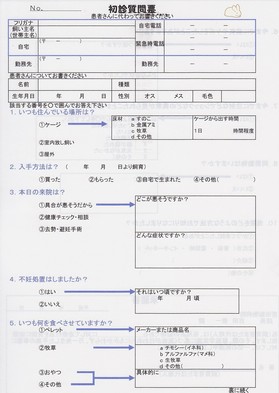 No.
初診質問票
患者さんに代わってお書きください
フリガナ
飼い主名
(世帯主名)
自宅電話 － －
自宅 (〒 － )
緊急時電話 － －
勤務先 (〒 － )
勤務先 － －
患者さんについてお書きください
名前 種類
生年月日 年 月 日 性別 オス メス 毛色
該当する番号を○で囲んでお答え下さい
1. いつも住んでいる場所は？
①ケージ
床材 a すのこ
b 金属アミ
c 牧草
d その他( )
ケージから出す時間
1日 時間程度
②室内放し飼い
③屋外
2. 入手方法は？ ( 年 月 日より飼育)
①買った ②もらった ③自宅で生まれた ④その他( )
3. 本日の来院は？
①具合が悪そうだから
どこが悪そうですか？
②健康チェック・相談
③去勢・避妊手術
どんな症状ですか？
4. 不妊処置はしましたか？
①はい
それはいつ頃ですか？
年 月 頃
②いいえ
5. いつも何を食べさせていますか？
①ペレット
メーカーまたは商品名
②牧草
a チモシー(イネ科)
b アルファルファ(マメ科)
c 生牧草
d その他( )
③おやつ
④その他
具体的に
裏に続く